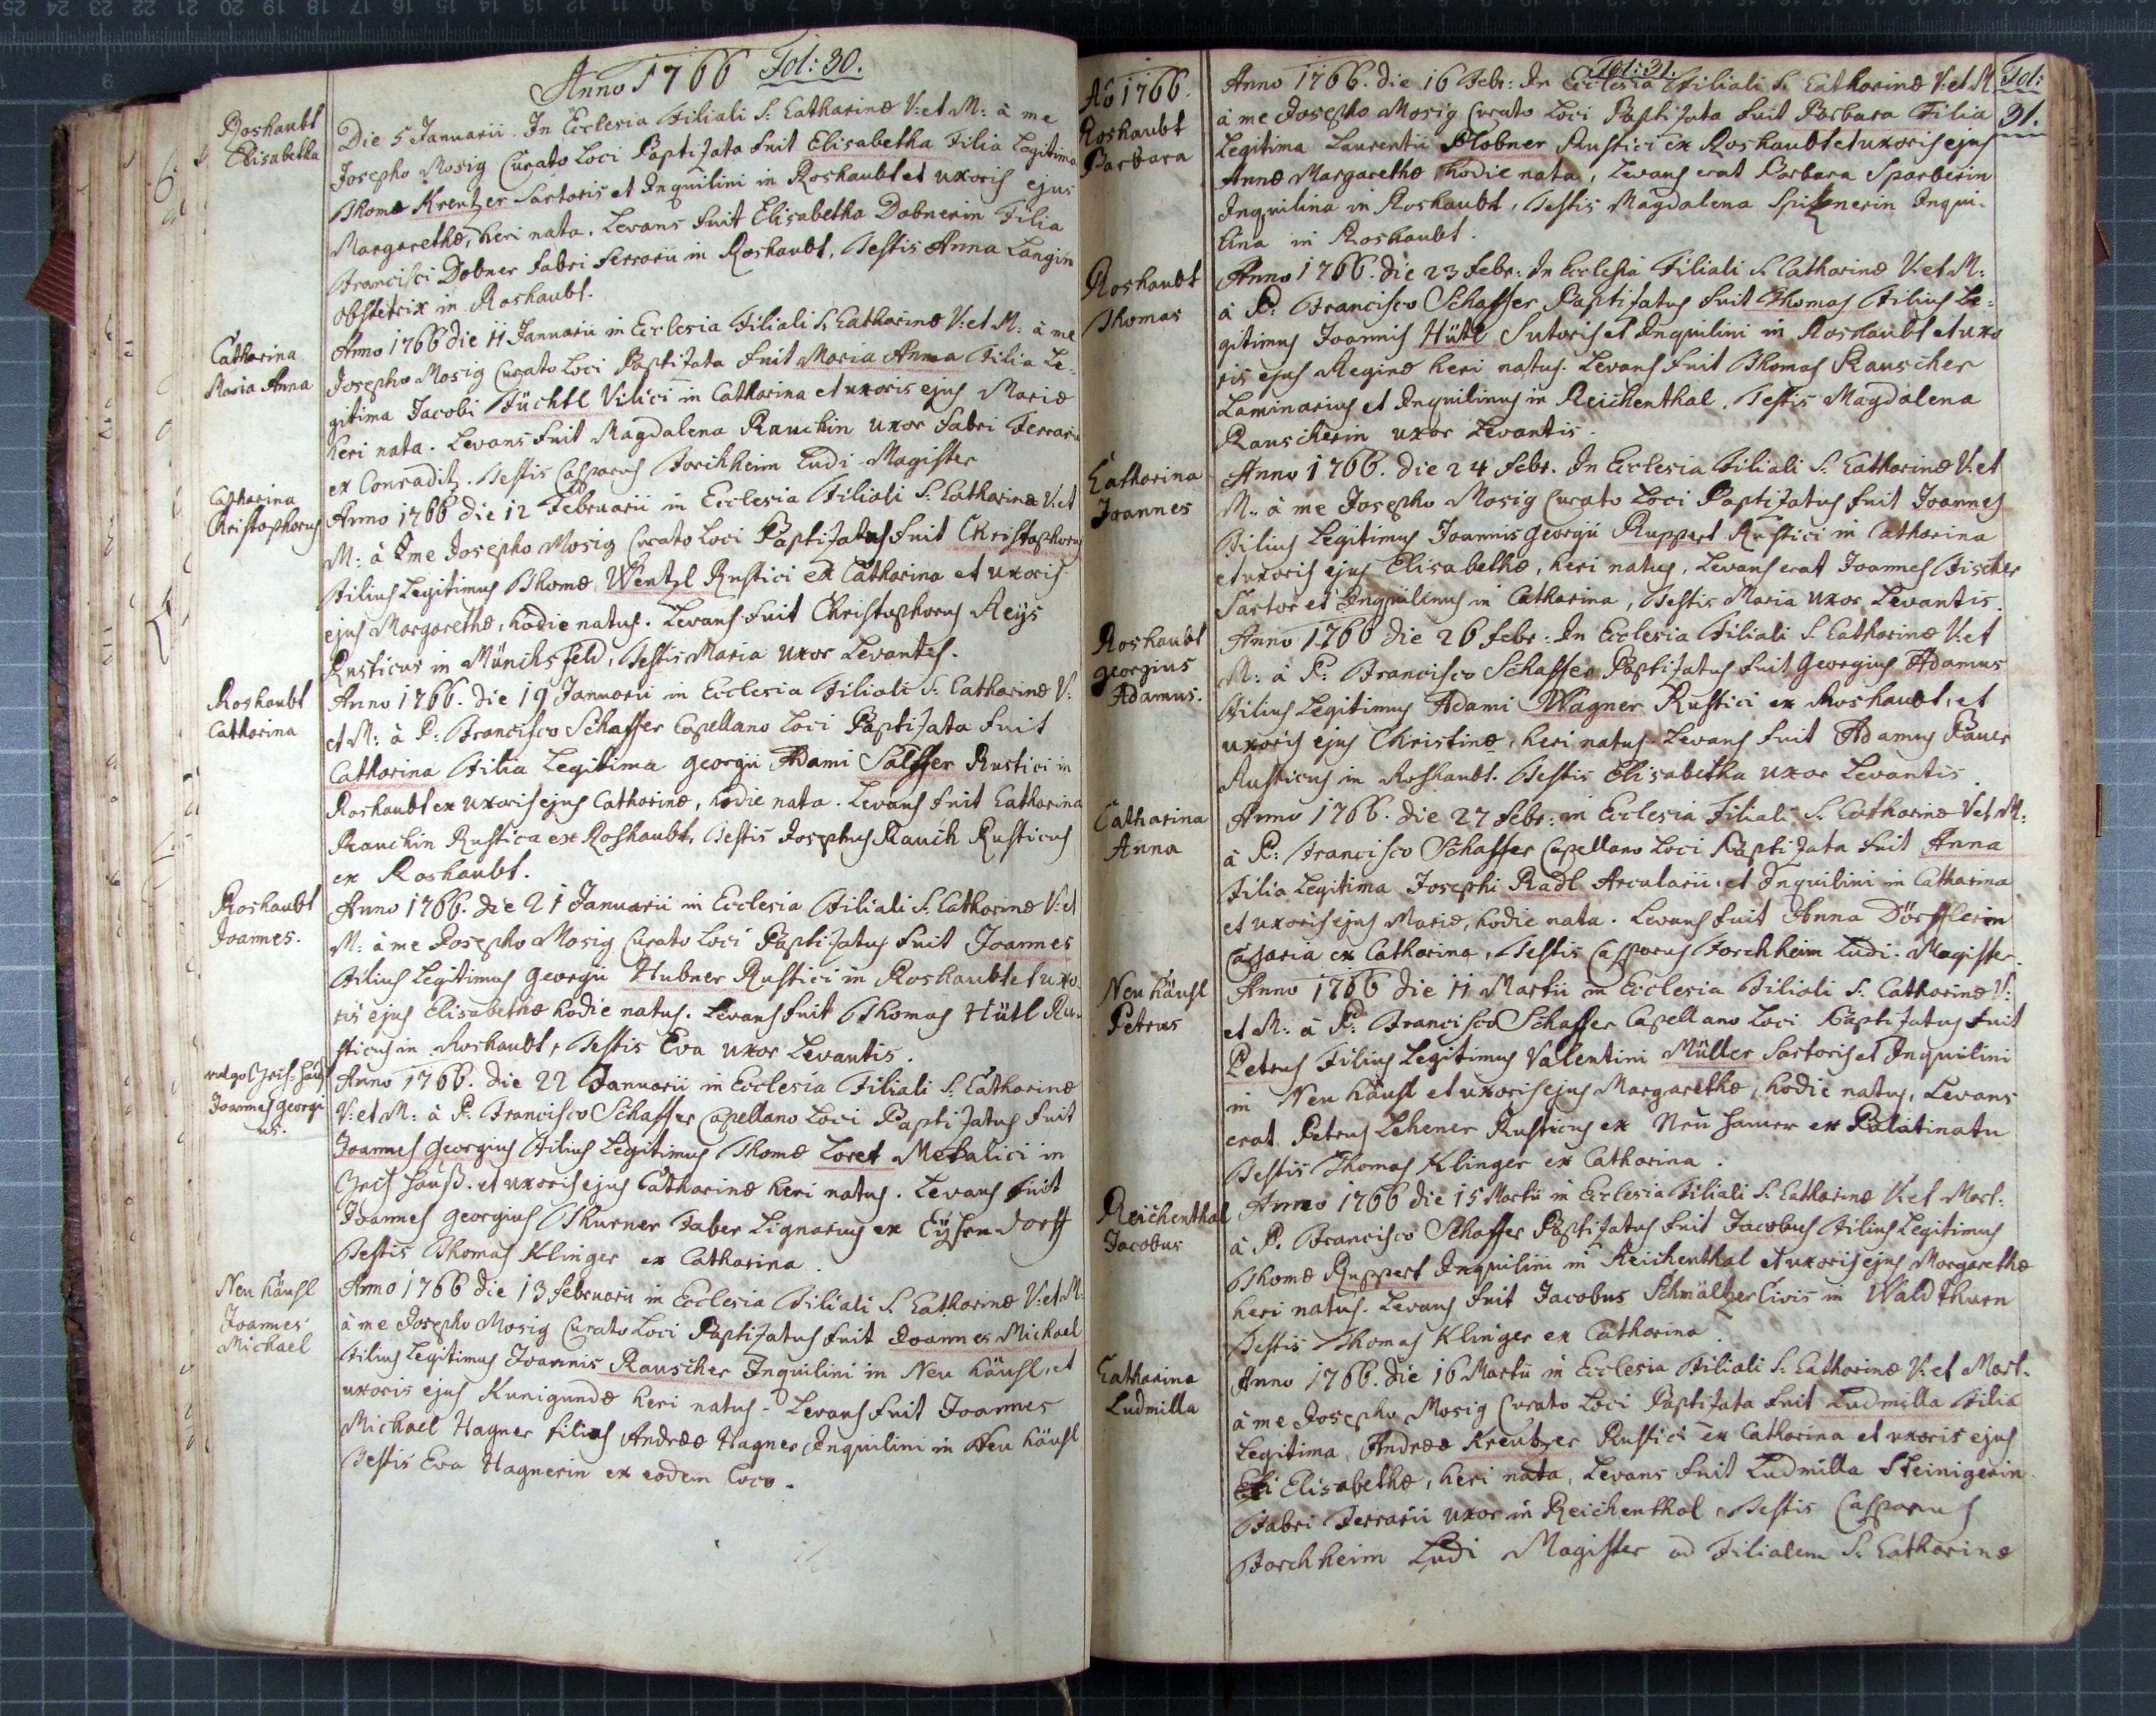 Anno 1766 Fol: 30.
Roshaubt
Elisabetha
Die 5 Januarii. In Ecclesia Filiali S: Catharinæ V: et M: à me
Josepho Mosig Curato Loci Baptizata fuit Elisabetha Filia Legitima
Thomæ Kreutzer Sartoris et Inquilini in Roshaubt et uxoris ejus
Margarethæ, heri nata. Levans fuit Elisabetha Dobnerin Filia
Francisci Dobner fabri ferrarii in Roshaubt, Testis Anna Langin
obstetrix in Roshaubt.
Catharina
Maria Anna
Anno 1766 die 11 Januarii in Ecclesia Filiali S. Catharinæ V: et M: à me
Josepho Mosig Curato Loci Baptizata fuit Maria Anna Filia Le-
gitima Jacobi Füchtl Vilici in Catharina et uxoris ejus Mariæ
heri nata. Levans fuit Magdalena Rauchin uxor fabri Ferrarii
ex Conraditz. Testis Casparus Forchheim Ludi-Magister
Catharina
Christophorus
Anno 1766 die 12 Februarii in Ecclesia Filiali S: Catharinæ V: et
M: à me Josepho Mosig Curato Loci Baptizatus fuit Christophorus
Filius Legitimus Thomæ Wentzl Rustici ex Catharina et uxoris
ejus Margarethæ, hodie natus. Levans fuit Christophorus Reÿs
Rusticus in Münchsfeld, Testis Maria uxor Levantis.
Roshaubt
Catharina
Anno 1766. die 19 Januarii in Ecclesia Filiali S: Catharinæ V:
et M: à P: Francisco Schaffer Capellano Loci Baptizata fuit
Catharina Filia Legitima Georgii Adami Salffer Rustici in
Roshaubt ex uxoris ejus Catharinæ, hodie nata. Levans fuit Catharina
Rauchin Rustica ex Roshaubt, Testis Josephus Rauch Rusticus
ex Roshaubt.
Roshaubt
Joannes.
Anno 1766. die 21 Januarii in Ecclesia Filiali S: Catharinæ V: et
M: à me Josepho Mosig Curato Loci Baptizatus fuit Joannes
Filius Legitimus Georgii Hubner Rustici in Roshaubt et uxo-
ris ejus Elisabethæ hodie natus. Levans fuit Thomas Hütl Ru-
sticus in Roshaubt, Testis Eva uxor Levantis.
vulgo
Joannes Georgi
us.
Anno 1766. die 22 Januarii in Ecclesia Filiali S: Catharinæ
V: et M: à P: Francisco Schaffer Capellano Loci Baptizatus fuit
Joannes Georgius Filius Legitimus Thomæ Loret Metalici in
et uxoris ejus Catharinæ heri natus. Levans fuit
Joannes Georgius Thurner Faber Lignarius ex Eÿsendorff
Testis Thomas Klinger ex Catharina.
Neu häusl
Joannes
Michael
Anno 1766 die 13 februarii in Ecclesia Filiali S. Catharinæ V: et M:
à me Josepho Mosig Curato Loci Baptizatus fuit Joannes Michael
Filius Legitimus Joannis Rauscher Inquilini in Neu häusl, et
uxoris ejus Kunigundæ heri natus. Levans fuit Joannes
Michael Hagner filius Andreæ Hagner Inquilini in Neu häusl
Testis Eva Hagnerin ex eodem loco.
Fol: 31.
Fol:
31.
Aõ 1766.
Roshaubt
Barbara
Anno 1766. die 16 Febr: In Ecclesia Filiali S. Catharinæ V: et M
à me Josepho Mosig Curato Loci Baptizata fuit Barbara Filia
Legitima Laurentii Plobner Rustici ex Roshaubt et uxoris ejus
Annæ Margarethæ hodie nata, Levans erat Barbara Sparberin
Inquilina in Roshaubt, Testis Magdalena Inqui-
lina in Roshaubt.
Roshaubt
Thomas
Anno 1766. die 23 febr: In Ecclesia Filiali S. Catharinæ V: et M:
à P: Francisco Schaffer Baptizatus fuit Thomas Filius Le-
gitimus Joannis Hütl Sutoris et Inquilini in Roshaubt et uxo
ris ejus Reginæ heri natus. Levans fuit Thomas Rauscher
Laminarius et Inquilinus in Reichenthal. Testis Magdalena
Rauscherin uxor Levantis.
Catharina
Joannes
Anno 1766. die 24 febr. In Ecclesia Filiali S: Catharinæ V: et
M: à me Josepho Mosig Curato Loci Baptizatus fuit Joannes
Filius Legitimus Joannis Georgii Ruppert Rustici in Catharina
et uxoris ejus Elisabethæ, heri natus, Levans erat Joannes Fischer
Sartor et Inquilinus in Catharina, Testis Maria uxor Levantis.
Roshaubt
Georgius
Adamus.
Anno 1766 die 26 febr: In Ecclesia Filiali S. Catharinæ V: et
M: à P: Francisco Schaffer Baptizatus fuit Georgius Adamus
Filius Legitimus Adami Wagner Rustici ex Roshaubt, et
uxoris ejus Christinæ, heri natus. Levans fuit Adamus Bauer
Rusticus in Roshaubt. Testis Elisabetha uxor Levantis.
Catharina
Anna
Anno 1766. die 27 febr: in Ecclesia Filiali S. Catharinæ V: et M:
à P: Francisco Schaffer Capellano Loci Baptizata fuit Anna
Filia Legitima Josephi Radl Arcularii, et Inquilini in Catharina
et uxoris ejus Mariæ, hodie nata. Levans fuit Anna Dörfflerin
Casaria ex Catharina, Testis Casparus Forchheim Ludi-Magister.
Neu häusl
Petrus
Anno 1766 die 11 Martii in Ecclesia Filiali S: Catharinæ V:
et M: à P: Francisco Schaffer Capellano Loci Baptizatus fuit
Petrus Filius Legitimus Valentini Müller Sartoris et Inquilini
in Neu häusl et uxoris ejus Margarethæ, hodie natus, Levans
erat Petrus Lehener Rusticus ex Neu ex Palatinatu
Testis Thomas Klinger ex Catharina.
Reichenthal
Jacobus
Anno 1766 die 15 Martii in Ecclesia Filiali S. Catharinæ V: et Mart:
à P. Francisco Schaffer Baptizatus fuit Jacobus Filius Legitimus
Thomæ Ruppert Inquilini in Reichenthal et uxoris ejus Margarethæ
heri natus. Levans fuit Jacobus Schmältzer Civis in Waldthurn
Testis Thomas Klinger ex Catharina.
Catharina
Ludmilla
Anno 1766. die 16 Martii in Ecclesia Filiali S: Catharinæ V: et Mart.
à me Josepho Mosig Curato Loci Baptizata fuit Ludmilla Filia
Legitima Andreæ Kreutzer Rustici ex Catharina et uxoris ejus
Elisabethæ, heri nata, Levans fuit Ludmilla Steinigerin
Fabri Ferrarii uxor in Reichenthal, Testis Casparus
Forchheim Ludi Magister ad Filialem S. Catharinæ